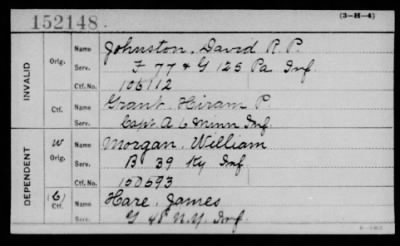 152148.
(3-H-4)
INVALID
Orig.
Name Johnston, David R. P.
Serv. F 77 & G 125 Pa Inf
Ctf. No. 106112
Ctf.
Name Grant, Hiram P.
Serv. Capt. A 6 Minn Inf.
DEPENDENT
W
Orig.
Name Morgan, William
Serv. B 39 Ky Inf
Ctf. No. 150593
Ctf.
Name Hare, James
Serv. G 48 N.Y. Inf.